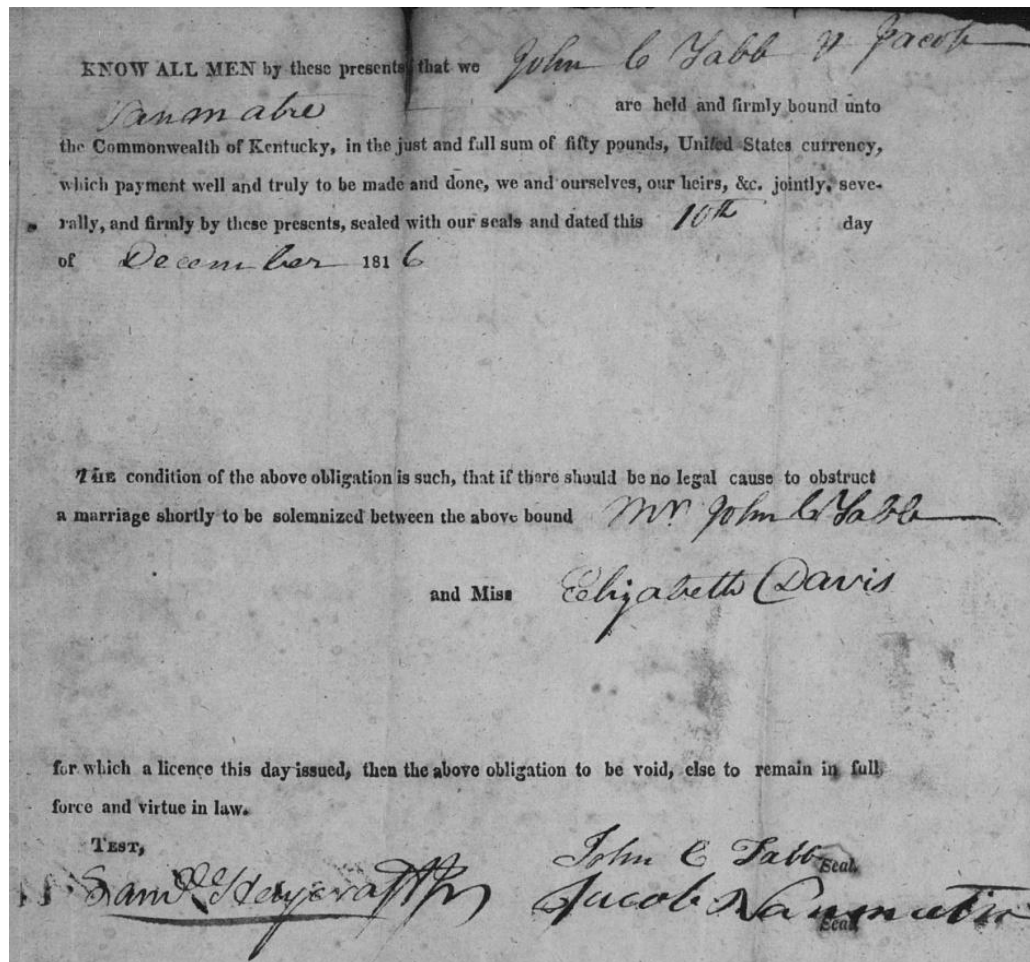 KNOW ALL MEN by these presents that we John C Tabb & Jacob
Vanmatre are held and firmly bound unto
the Commonwealth of Kentucky, in the just and full sum of fifty pounds, United States currency,
which payment well and truly to be made and done, we and ourselves, our heirs, &c. jointly, seve-
rally, and firmly by these presents, sealed with our seals and dated this 10th day
of December 1816
THE condition of the above obligation is such, that if there should be no legal cause to obstruct
a marriage shortly to be solemnized between the above bound Mr John C Tabb
and Miss Elizabeth Davis
for which a licence this day issued, then the above obligation to be void, else to remain in full
force and virtue in law.
TEST,
John C Tabb Seal.
Saml Haycraft Jr Jacob Vanmetre
Seal.